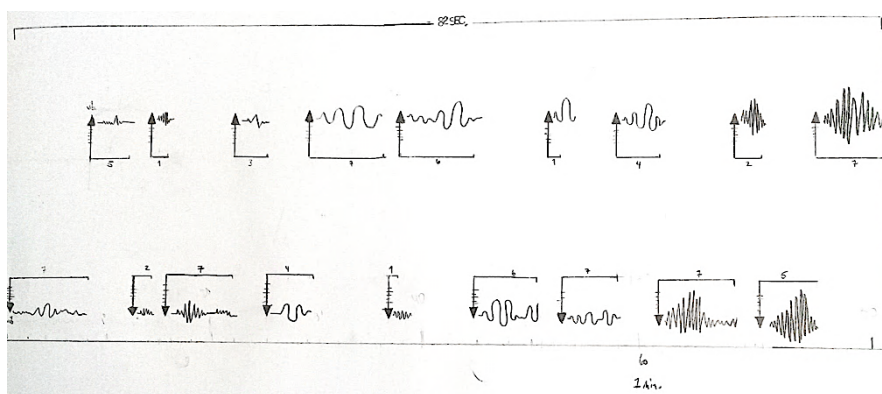 82 SEC.
5 1 3 7 6 1 4 2 7
7 2 7 4 1 6 7 7 5
60
1 Min.